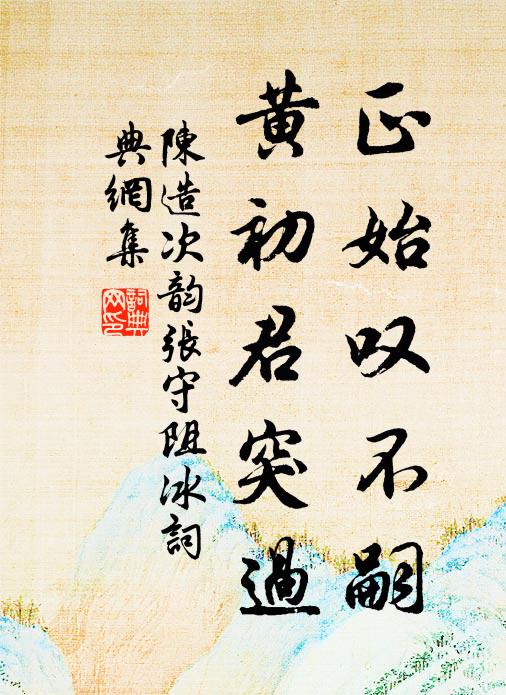 正始叹不嗣
黄初君突過
陳造次韵張守阻冰詞
典網集
詞典
网印